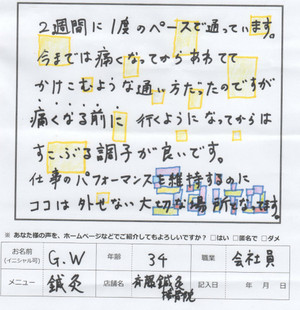 2週間に1度のペースで通っています。
今までは痛くなってからあわてて
かけこむような通い方だったのですが
痛くなる前に行くようになってからは
すこぶる調子が良いです。
仕事のパフォーマンスを維持するのに
ココは外せない大切な場所なんてます
※ あなた様の声を、ホームページなどでご紹介してもよろしいですか？ □はい □匿名で □ダメ
お名前 (イニシャル可) G.W 年齢 34 職業 会社員
メニュー 鍼灸 店舗名 斉服鍼灸 接骨院 記入日 年 月 日